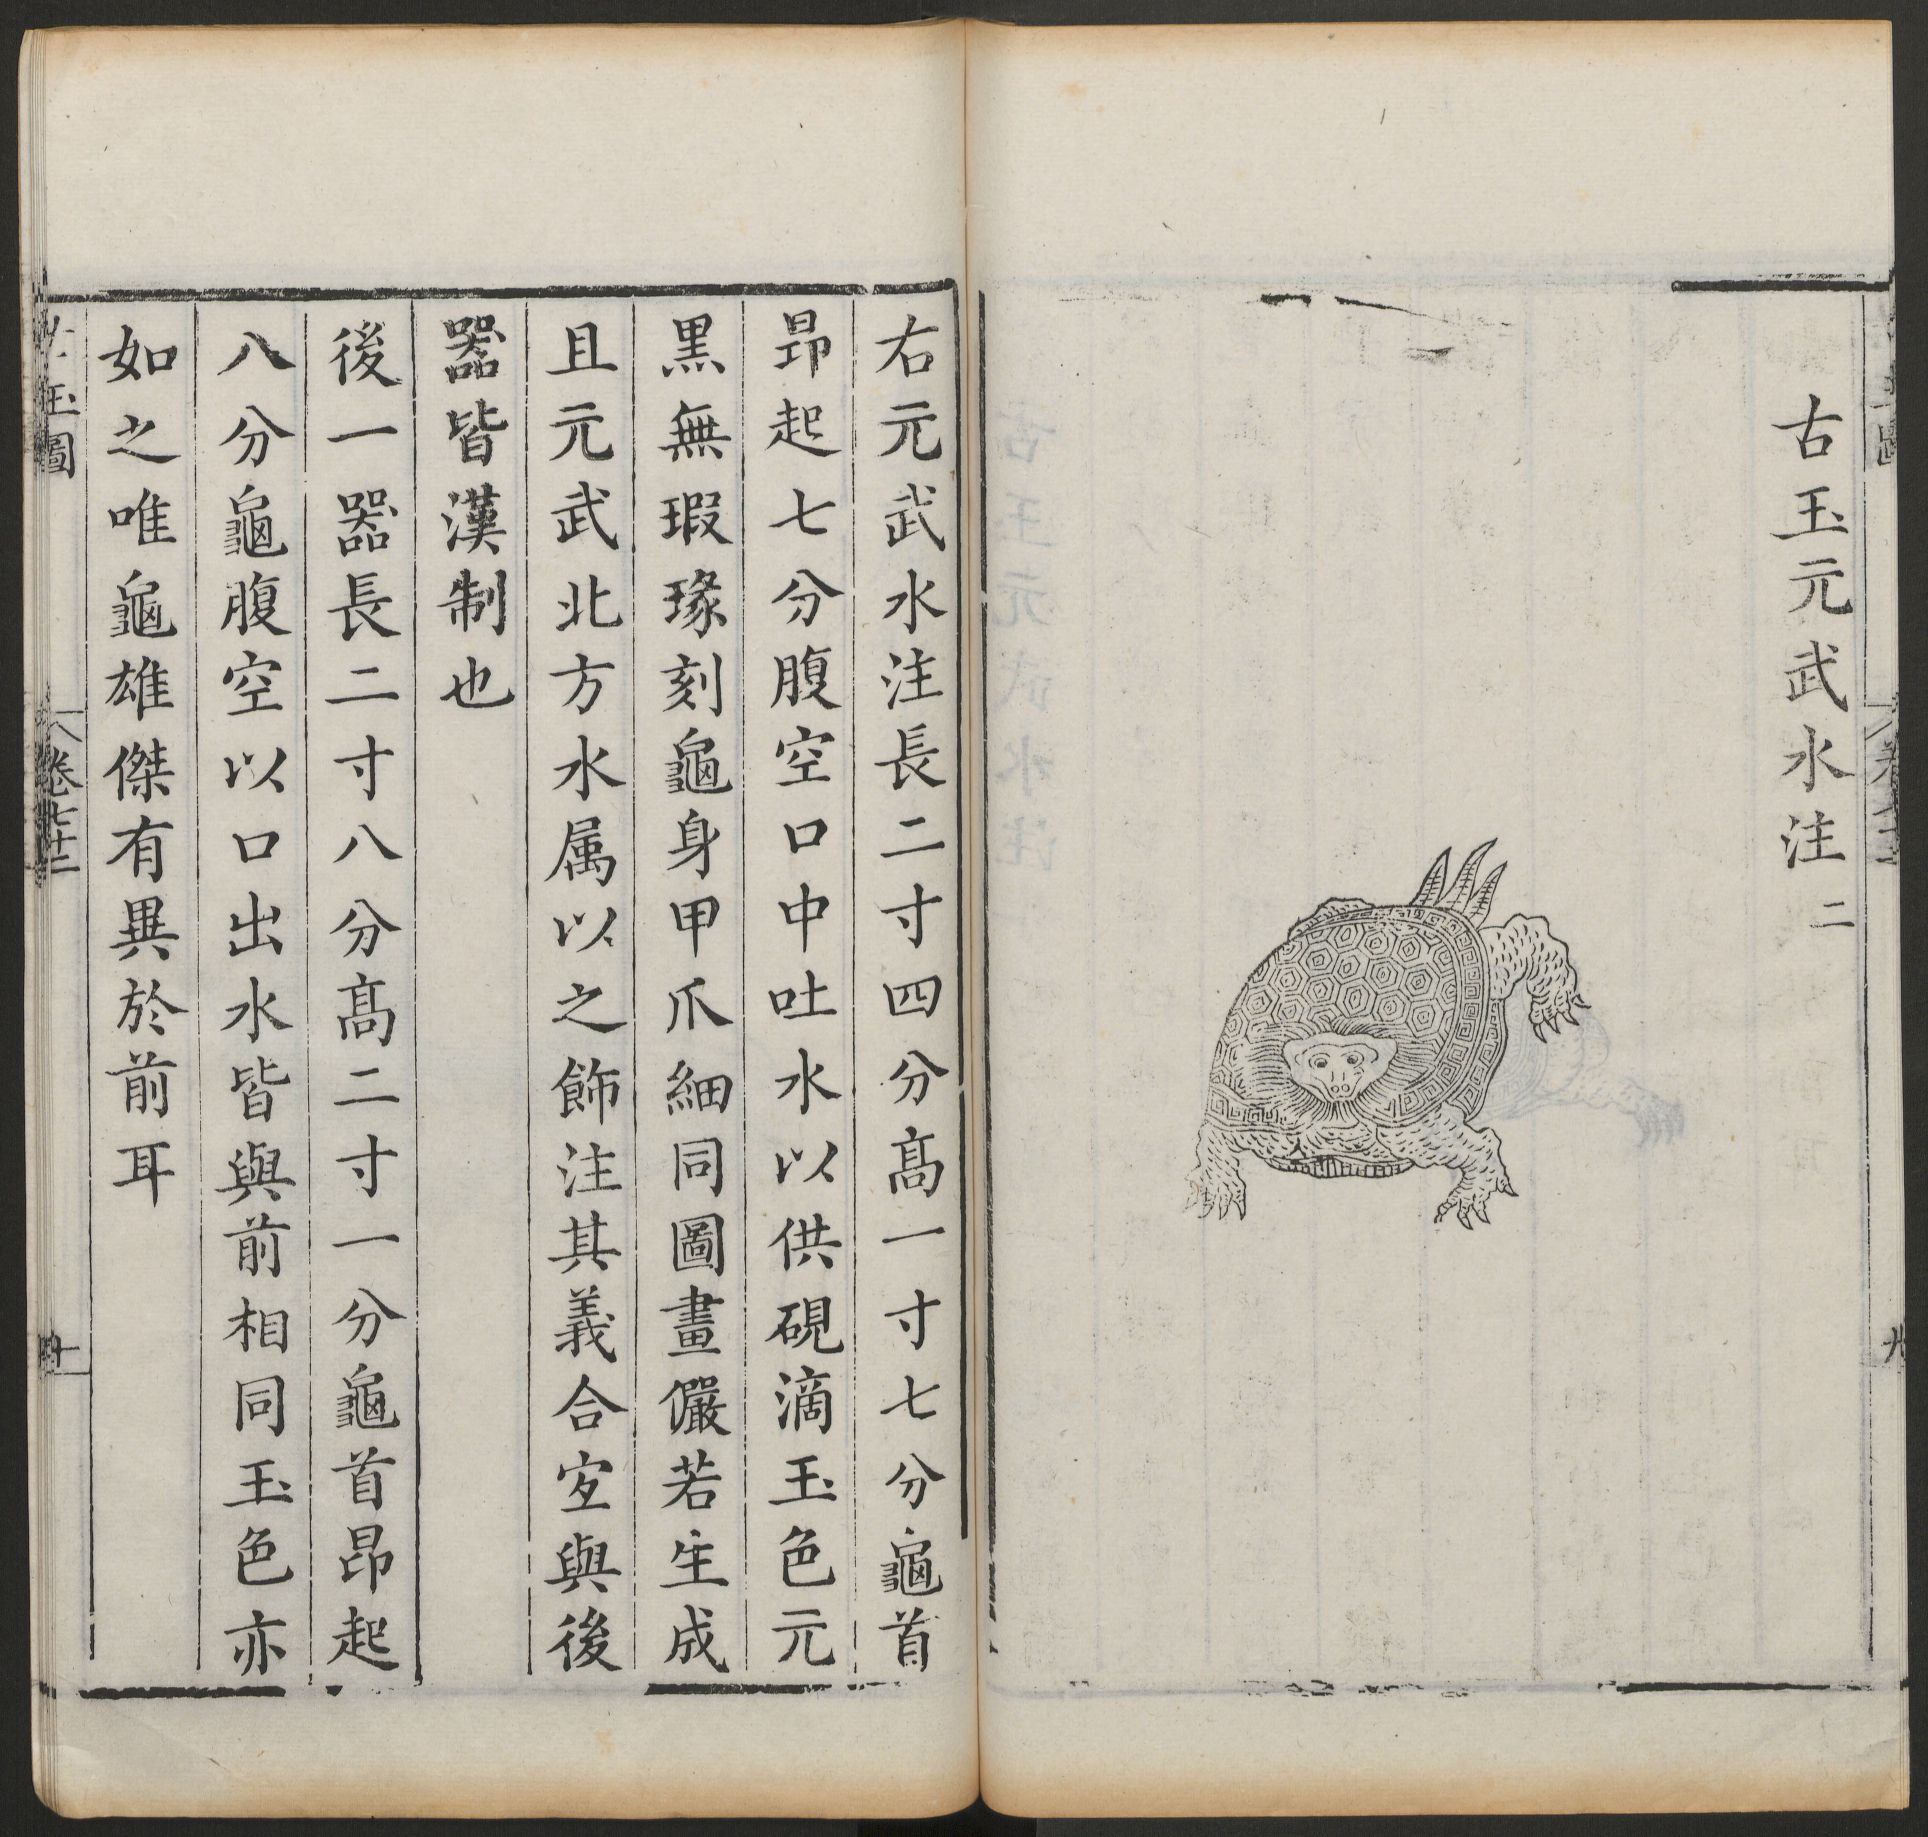 古玉元武水注二
右元武水注長二寸四分髙一寸七分龜首
昂起七分腹空口中吐水以供硯滴玉色元
黒無瑕瑑刻龜身甲爪細同圖畫儼若生成
且元武北方水属以之飾注其義合宐與後
器皆漢制也
後一器長二寸八分髙二寸一分龜首昂起
八分龜腹空以口出水皆與前相同玉色亦
如之唯龜雄傑有異於前耳
古玉圖
卷七十二
十